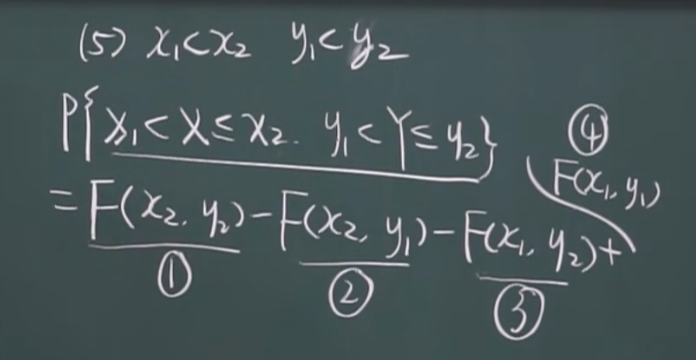 (5) x₁<x₂ y₁<y₂
P{x₁<X≤x₂. y₁<Y≤y₂}
④
F(x₁, y₁)
=F(x₂. y₂)-F(x₂, y₁)-F(x₁, y₂)+
① ② ③